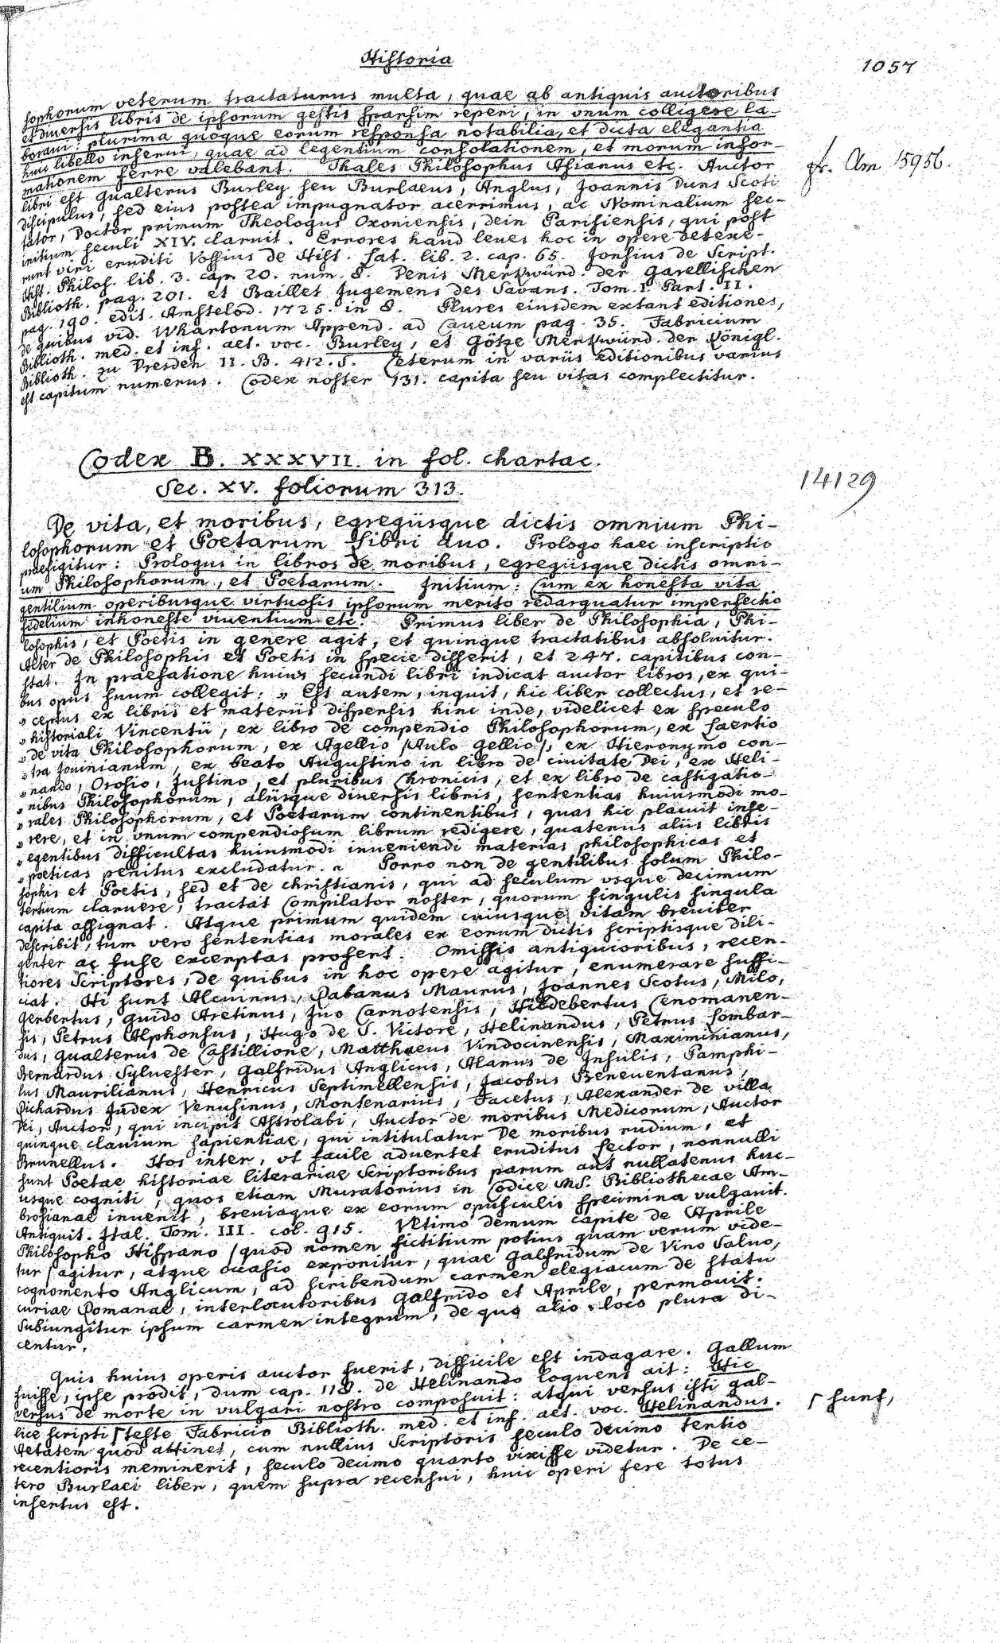 Historia
1057
sophorum veterum tractaturus multa, quae ab antiquis auctoribus
et diversis libris de ipsorum gestis sparsim reperi, in vnum colligere la-
boraui: plurima quoque eorum responsa notabilia, et dicta elegantia
huic libello inserui, quae ad legentium consolationem, et morum infor-
mationem ferre valebant. Thales Philosophus Asianus etc. Auctor
gr. Clm 15956.
libri est Gualterus Burley seu Burlaeus, Anglus, Joannis Duns Scoti
discipulus, sed eius postea impugnator acerrimus, ac Nominalium sec-
tator, Doctor primum Theologus Oxoniensis, dein Parisiensis, qui post
initium seculi XIV. claruit. Errores haud leues hoc in opere detexe-
runt viri eruditi Vossius de Hist. Lat. lib. 2. cap. 65. Jonsius de Script.
Hist. Philos. lib. 3. cap. 20. num. 8. Denis Merkwürd. der Garellischen
Biblioth. pag. 201. et Baillet Jugemens des Savans. Tom. I. Part. II.
pag. 190. edit. Amstelod. 1725. in 8. Plures eiusdem extant editiones,
de quibus vid. Whartonum Append. ad Caueum pag. 35. Fabricium
Biblioth. med. et inf. aet. voc. Burley, et Götze Merkwürd. der Königl.
Biblioth. zu Dresden II. B. 412. S. Ceterum in variis editionibus varius
est capitum numerus. Codex noster 131. capita seu vitas complectitur.
Codex B. XXXVII. in fol. chartac.
Sec. XV. foliorum 313.
14129
De vita, et moribus, egregiisque dictis omnium Phi-
losophorum et Poetarum Libri duo. Prologo haec inscriptio
praefigitur: Prologus in libros de moribus, egregiisque dictis omni-
um Philosophorum, et Poetarum. Initium: Cum ex honesta vita
gentilium operibusque virtuosis ipsorum merito redarguatur imperfectio
fidelium inhoneste viuentium etc. Primus liber de Philosophia, Phi-
losophis, et Poesis in genere agit, et quinque tractatibus absoluitur.
Alter de Philosophis et Poetis in specie disserit, et 247. capitibus con-
stat. In praefatione huius secundi libri indicat auctor libros, ex qui-
bus opus suum collegit: „ Est autem, inquit, hic liber collectus, et re-
„ ceptus ex libris et materiis dispersis hinc inde, videlicet ex speculo
„ historiali Vincentii, ex libro de compendio Philosophorum, ex Laertio
„ de vita Philosophorum, ex Agellio /Aulo Gellio/, ex Hieronymo con-
„ tra Jouinianum, ex beato Augustino in libro de ciuitate Dei, ex Heli-
„ nando, Orosio, Justino, et pluribus Chronicis, et ex libro de castigatio-
„ nibus Philosophorum, aliisque diuersis libris, sententias huiusmodi mo-
„ rales Philosophorum, et Poetarum continentibus, quas hic placuit inse-
„ rere, et in vnum compendiosum librum redigere, quatenus aliis libris
„ egentibus difficultas huiusmodi inueniendi materias philosophicas et
„ poeticas penitus excludatur. „ Porro non de gentilibus solum Philo-
sophis et Poetis, sed et de christianis, qui ad seculum vsque decimum
tertium claruere, tractat Compilator noster, quorum singulis singula
capita assignat. Atque primum quidem cuiusque vitam breuiter
describit, tum vero sententias morales ex eorum dictis scriptisque dili-
genter ac fuse excerptas profert. Omissis antiquioribus, recen-
tiores Scriptores, de quibus in hoc opere agitur, enumerare suffi-
ciat. Hi sunt Alcuinus, Rabanus Maurus, Joannes Scotus, Milo,
Gerbertus, Guido Aretinus, Juo Carnotensis, Hildebertus Cenomanen-
sis, Petrus Alphonsus, Hugo de S. Victore, Helinandus, Petrus Lombar-
dus, Gualterus de Castillione, Matthaeus Vindocinensis, Maximinianus,
Bernardus Syluester, Galfridus Anglicus, Alanus de Insulis, Pamphi-
lus Maurilianus, Henricus Septimellensis, Jacobus Beneuentanus,
Richardus Judex Venusinus, Montenarius, Facetus, Alexander de villa
Dei, Auctor, qui incipit Astrolabi, Auctor de moribus Medicorum, Auctor
quinque clauium sapientiae, qui intitulatur De moribus rudium, et
Brunellus. Hos inter, vt facile aduertet eruditus Lector, nonnulli
sunt Poetae historiae literariae Scriptoribus parum aut nullatenus huc-
usque cogniti, quos etiam Muratorius in Codice MS. Bibliothecae Am-
brosianae inuenit, breuiaque ex eorum opusculis specimina vulgauit.
Antiquit. Ital. Tom. III. col. 915. Vltimo demum capite de Aprile
Philosopho Hispano /quod nomen fictitium potius quam verum vide-
tur/ agitur, atque occasio exponitur, quae Galfridum de Vino Saluo,
cognomento Anglicum, ad scribendum carmen elegiacum de statu
curiae Romanae, interlocutoribus Galfrido et Aprile, permouit.
Subiungitur ipsum carmen integrum, de quo alio loco plura di-
centur.
Quis huius operis auctor fuerit, difficile est indagare. Gallum
fuisse, ipse prodit, dum cap. 118. de Helinando loquens ait: Hic
versus de morte in vulgari nostro composuit: atqui versus isti gal-
lice scripti ſ teste Fabricio Biblioth. med. et inf. aet. voc. Helinandus.
ſ sunt,
Aetatem quod attinet, cum nullius Scriptoris seculo decimo tertio
recentioris meminerit, seculo decimo quarto vixisse videtur. De ce-
tero Burlaei liber, quem supra recensui, huic operi fere totus
insertus est.